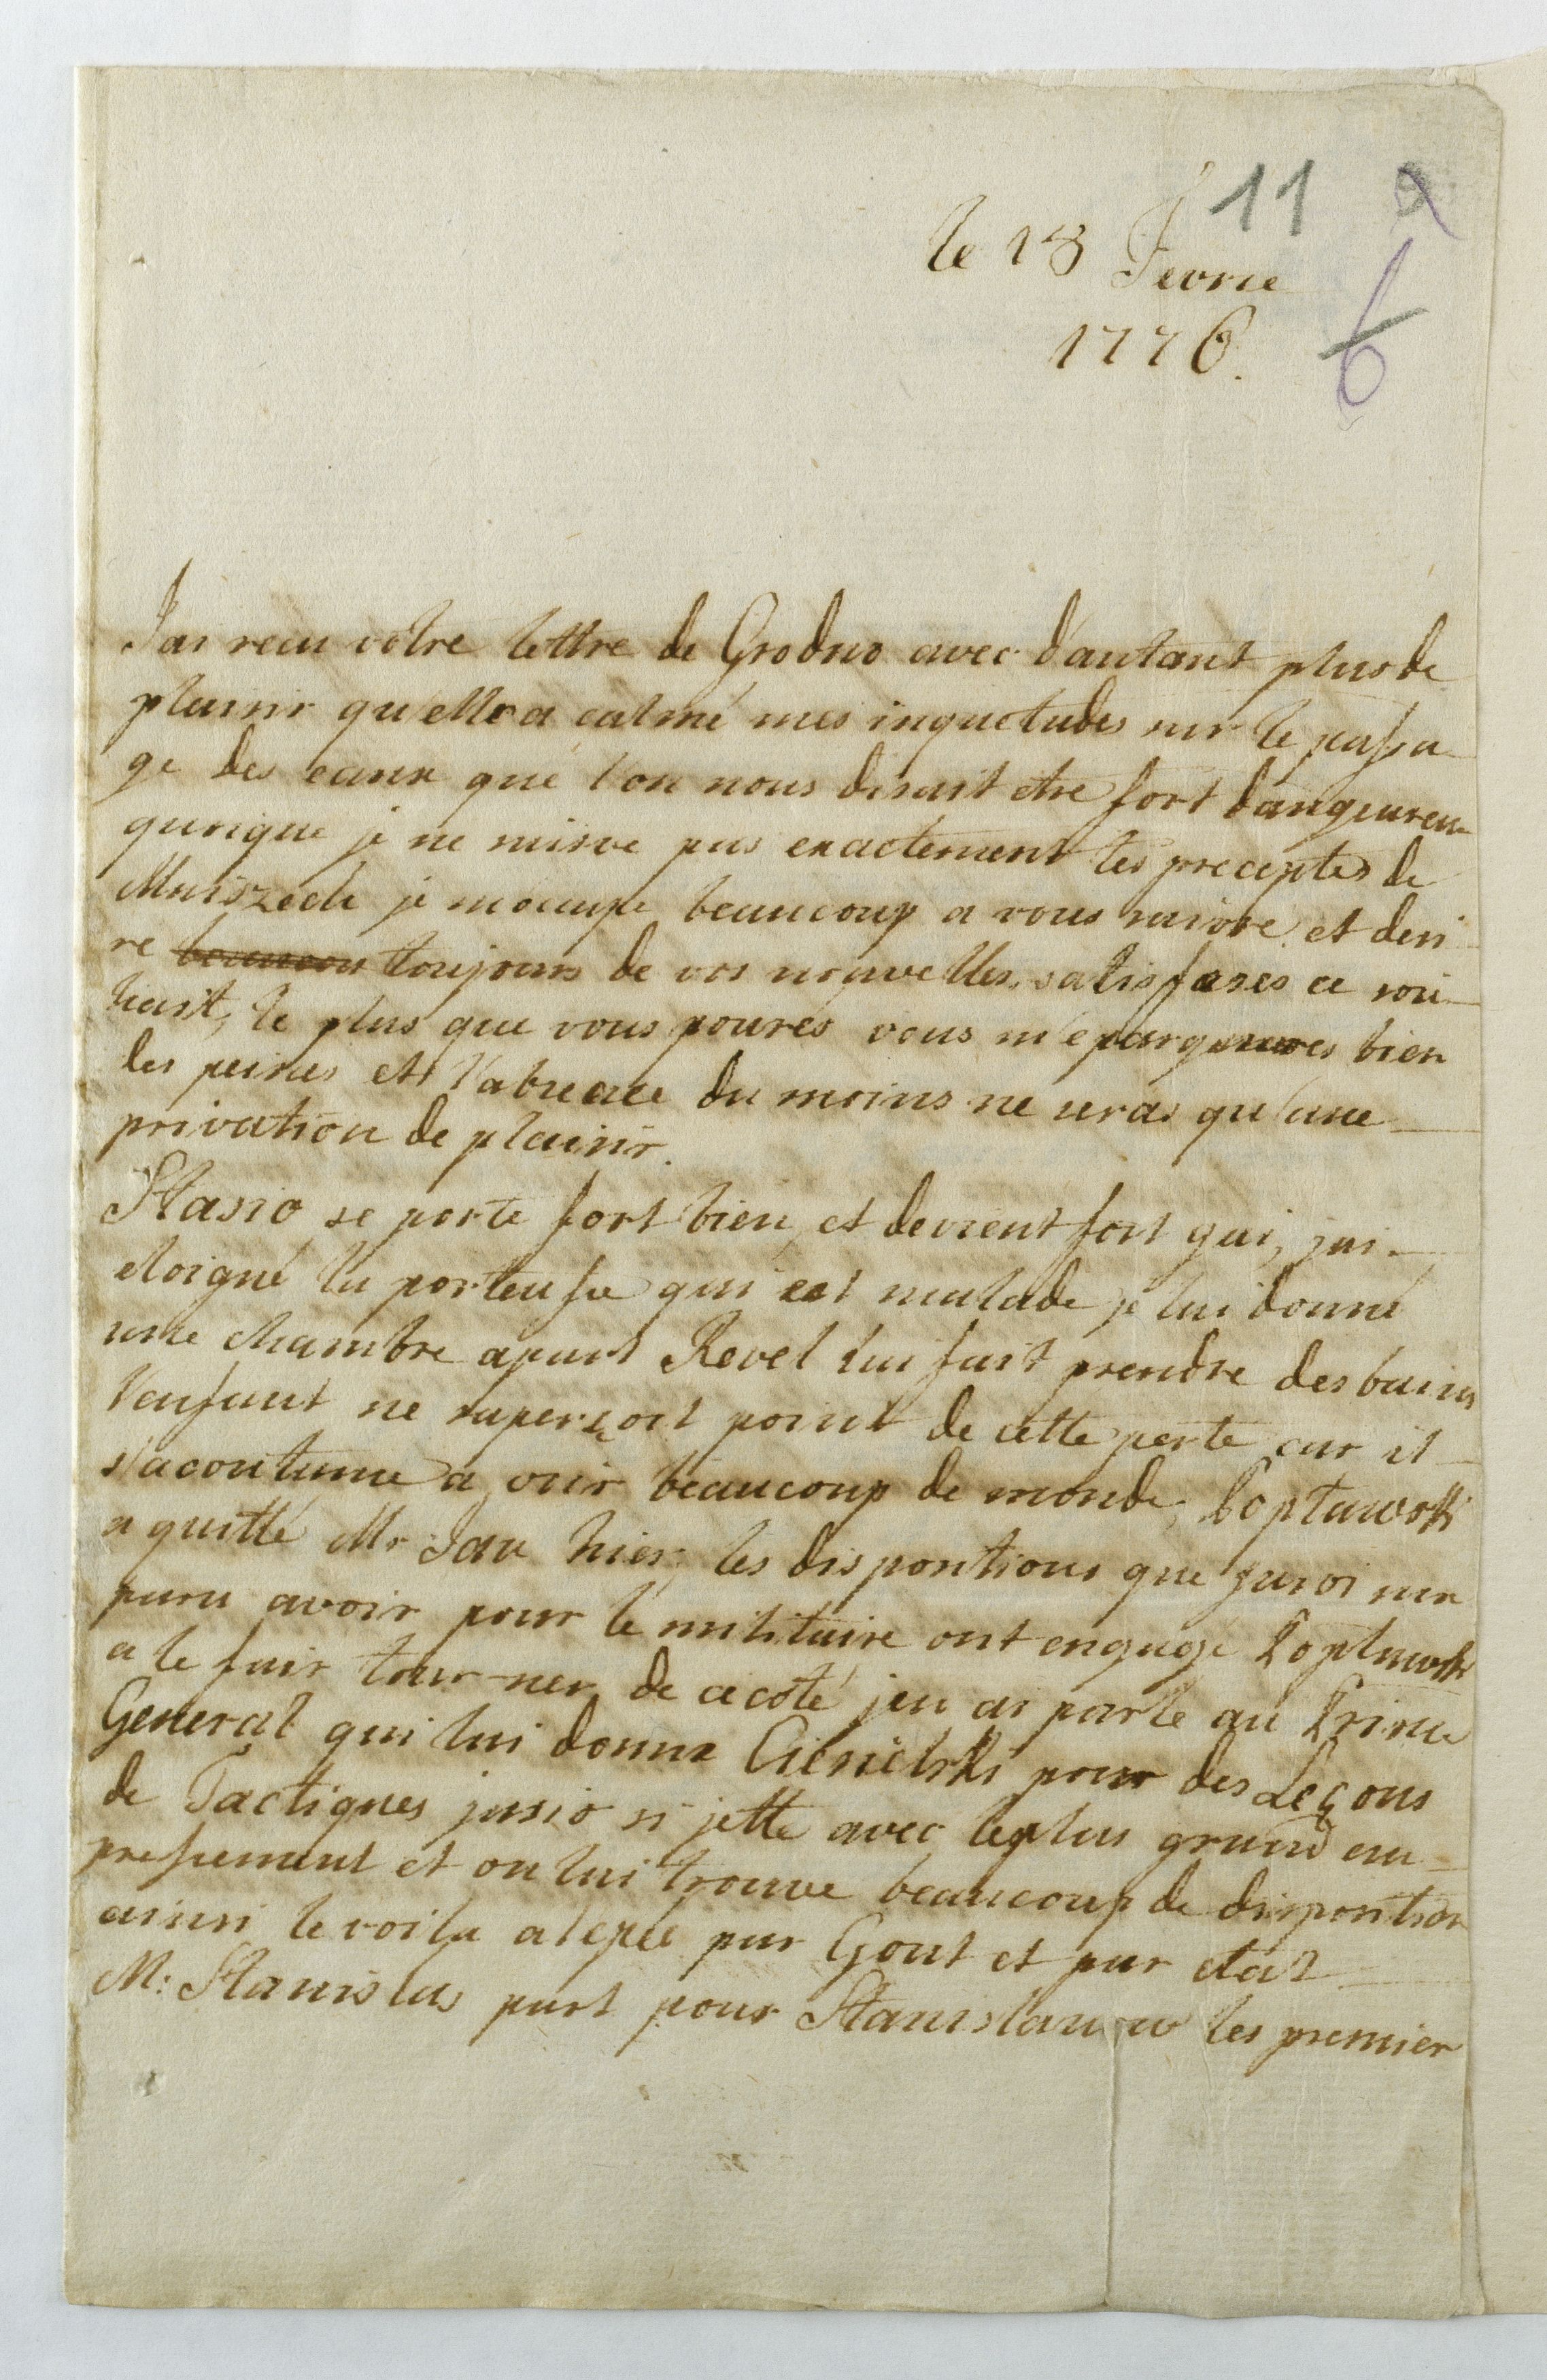 11
le 18 Fevrie
1776.
6
J'ai recu votre lettre de Grodno avec d'autant plus de
plaisir qu'elle a calmé mes inquetudes sur le passa-
ge des eaux que l'on nous disait etre fort dangeureu
quoique je ne suisve pas exactement les preceptes de
Mniszech je m'ocupe beaucoup a vous suivre et desi-
re toujours de vos nouvelles, satisfases ce sou-
hait, le plus que vous pourés vous m'epargneres bien
des peines et l'absence du moins ne seras qu'une
privation de plaisir.
Stasio se porte fort bien, et devient fort gai, jai
eloigné la porteuse qui est malade je lui donné
une chambre apart Revel lui fait prendre des bains
l'enfant ne s'apersoit point de cette perte car il
s'acoutume a voir beaucoup de monde, Koptuwski
a quitté Mr Jan hier, les dispositions que
paru avoir pour le militaire ont engagé Koptuwski
a le fair tour-ner de ce coté j'en ai parlé au Prince
General qui lui donne Ciesielski pour des Leçons
de Tactiques jusio si jette avec le plus grand em-
pressement et on lui trouve beaucoup de disposition
ainsi le voila a l'epée par Gout et par etat
M: Stanislas part pour Stanislawow les premier